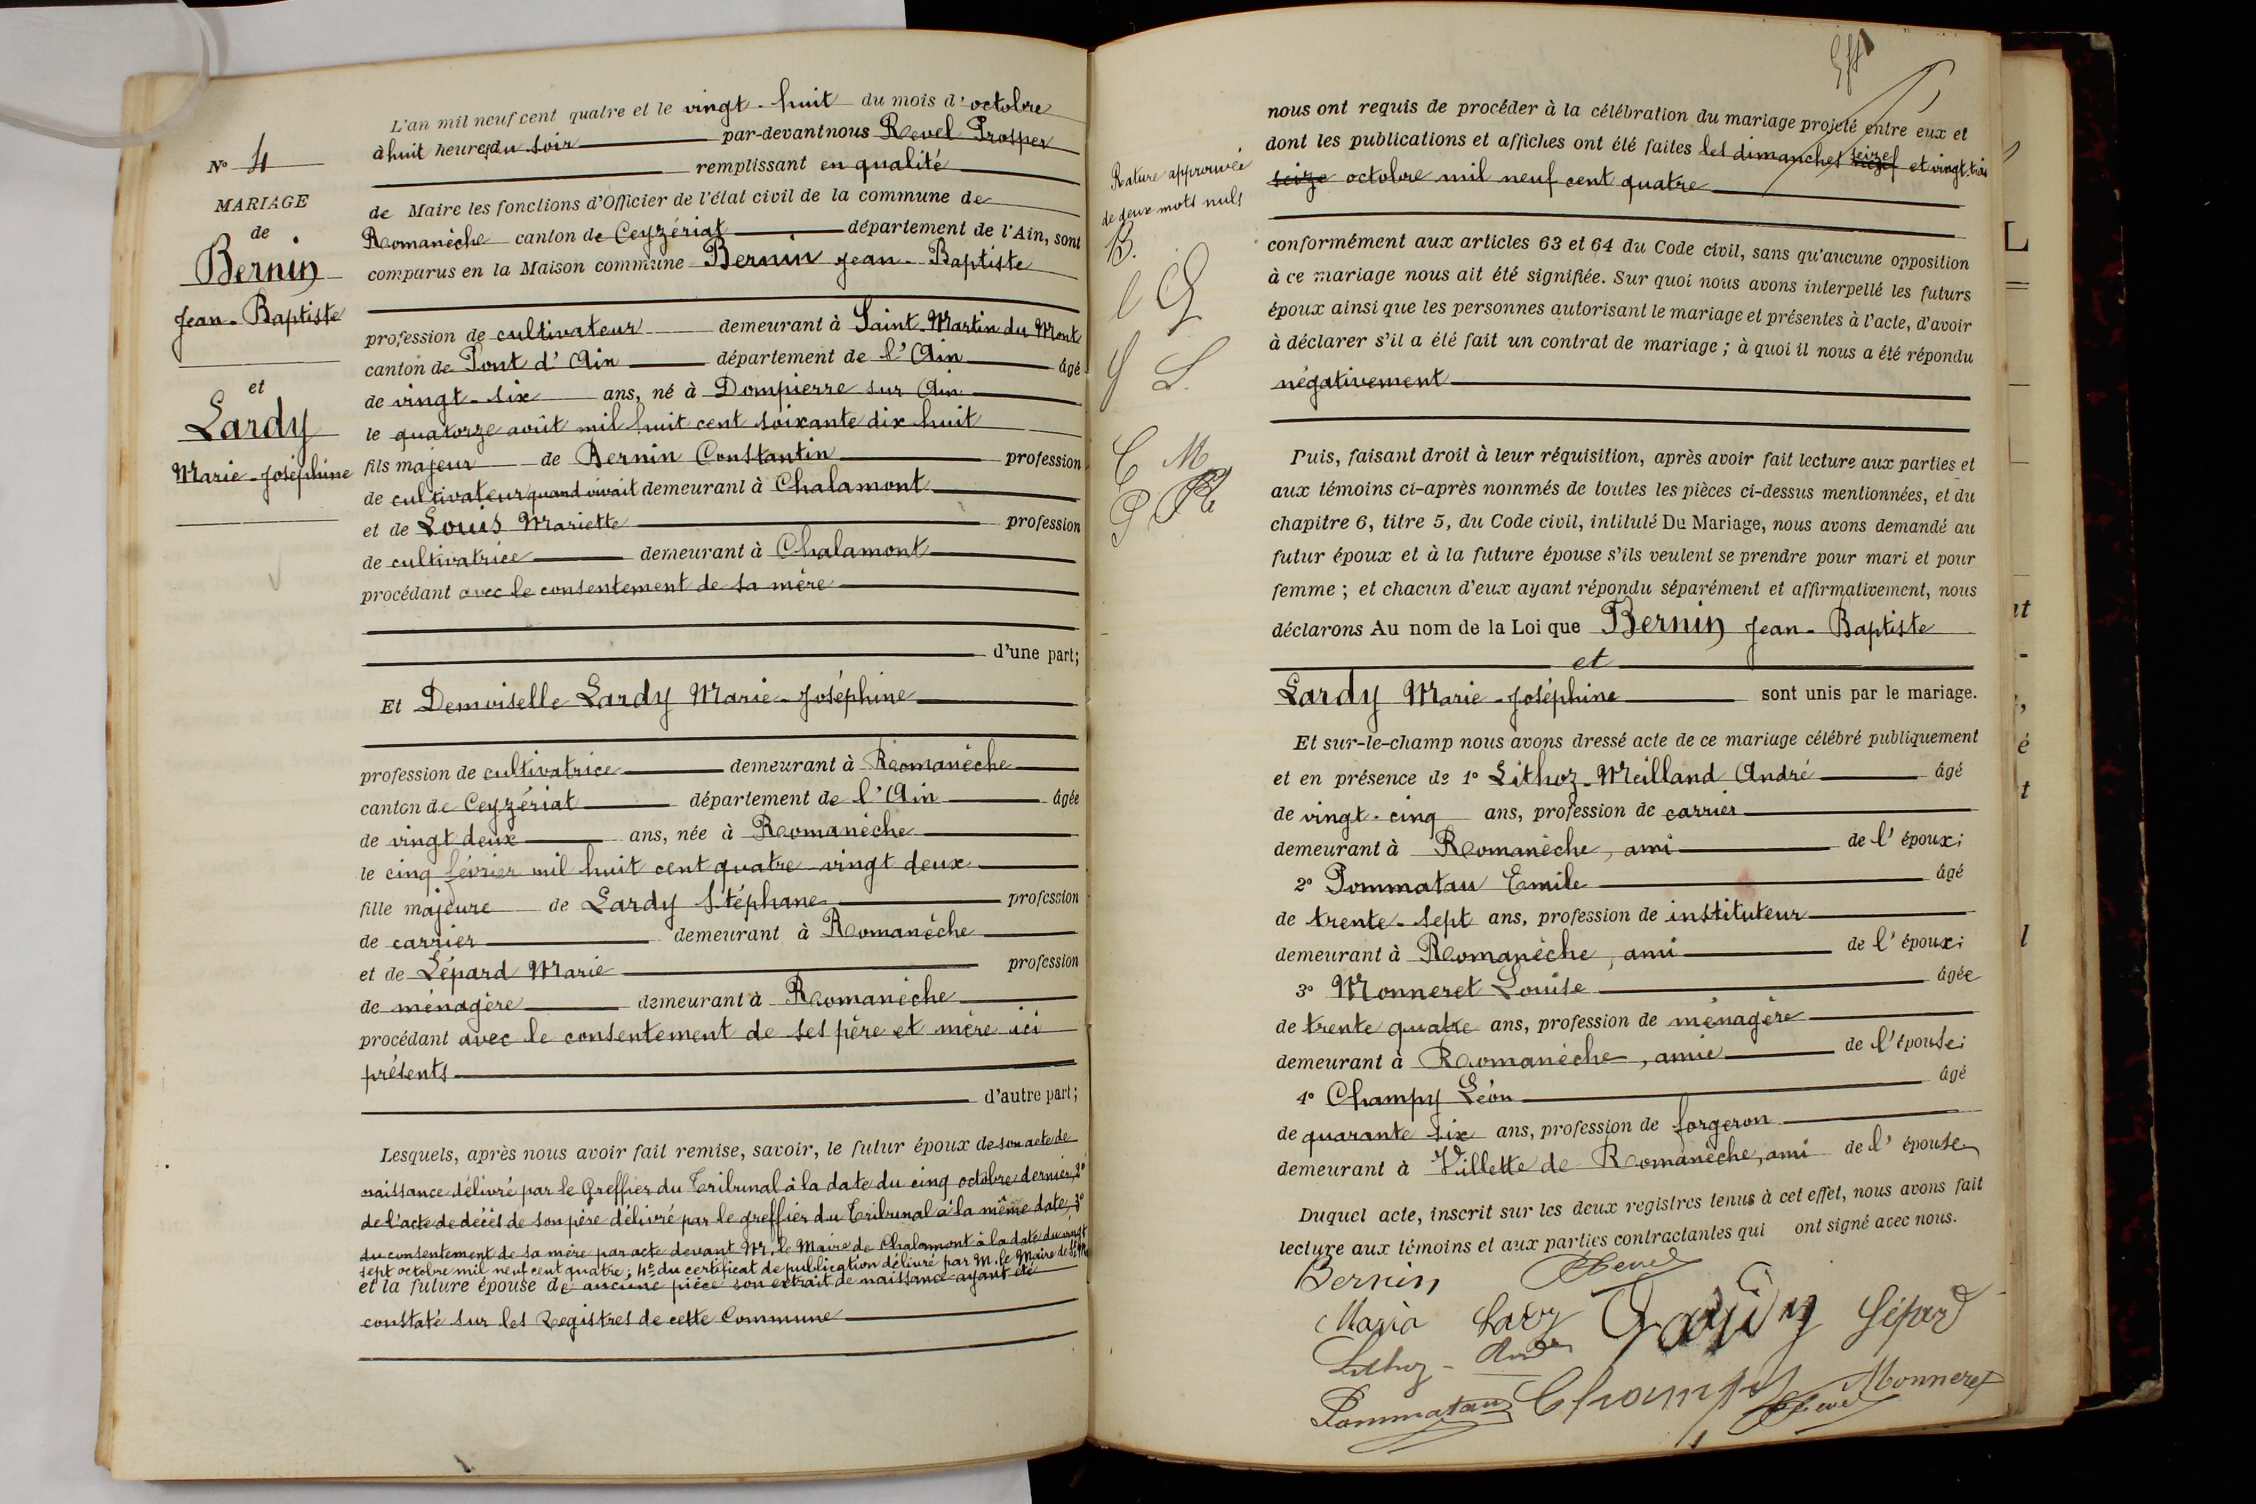 N° 4
MARIAGE
de
Bernin
Jean-Baptiste
et
Lardy
Marie-Joséphine
L'an mil neuf cent quatre et le vingt-huit du mois d'octobre
à huit heures du soir par-devant nous Revel Prosper
remplissant en qualité
de Maire les fonctions d'Officier de l'état civil de la commune de
Romanèche canton de Ceyzériat département de l'Ain, sont
comparus en la Maison commune Bernin Jean-Baptiste
profession de cultivateur demeurant à Saint-Martin du Mont
canton de Pont d'Ain département de l'Ain âgé
de vingt-six ans, né à Dompierre sur Ain
le quatorze août mil huit cent soixante dix huit
fils majeur de Bernin Constantin profession
de cultivateur quand vivait demeurant à Chalamont
et de Louis Mariette profession
de cultivatrice demeurant à Chalamont
procédant avec le consentement de sa mère
d'une part;
Et Demoiselle Lardy Marie-Joséphine
profession de cultivatrice demeurant à Romanèche
canton de Ceyzériat département de l'Ain âgée
de vingt deux ans, née à Romanèche
le cinq février mil huit cent quatre-vingt deux
fille majeure de Lardy Stéphane profession
de carrier demeurant à Romanèche
et de Sépard Marie profession
de ménagère demeurant à Romanèche
procédant avec le consentement de ses père et mère ici
présents
d'autre part;
Lesquels, après nous avoir fait remise, savoir, le futur époux de son acte de
naissance délivré par le Greffier du Tribunal à la date du cinq octobre dernier, 2°
de l'acte de décès de son père délivré par le greffier du Tribunal à la même date, 3°
du consentement de sa mère par acte devant Mr. le Maire de Chalamont à la date du vingt
sept octobre mil neuf cent quatre; 4° du certificat de publication délivré par M. le Maire de St M.
et la future épouse de aucune pièce son extrait de naissance ayant été
constaté sur les Registres de cette Commune
nous ont requis de procéder à la célébration du mariage projeté entre eux et
dont les publications et affiches ont été faites les dimanches seize et vingt-trois
seize octobre mil neuf cent quatre
Rature approuvée
de deux mots nuls
B.
L
S.
C M
conformément aux articles 63 et 64 du Code civil, sans qu'aucune opposition
à ce mariage nous ait été signifiée. Sur quoi nous avons interpellé les futurs
époux ainsi que les personnes autorisant le mariage et présentes à l'acte, d'avoir
à déclarer s'il a été fait un contrat de mariage; à quoi il nous a été répondu
négativement
Puis, faisant droit à leur réquisition, après avoir fait lecture aux parties et
aux témoins ci-après nommés de toutes les pièces ci-dessus mentionnées, et du
chapitre 6, titre 5, du Code civil, intitulé Du Mariage, nous avons demandé au
futur époux et à la future épouse s'ils veulent se prendre pour mari et pour
femme; et chacun d'eux ayant répondu séparément et affirmativement, nous
déclarons Au nom de la Loi que Bernin Jean-Baptiste
et
Lardy Marie-Joséphine sont unis par le mariage.
Et sur-le-champ nous avons dressé acte de ce mariage célébré publiquement
et en présence de 1° Lithoz-Meilland André âgé
de vingt-cinq ans, profession de carrier
demeurant à Romanèche, ami de l'époux;
2° Pommatau Emile âgé
de trente-sept ans, profession de instituteur
demeurant à Romanèche, ami de l'époux;
3° Monneret Louise âgée
de trente quatre ans, profession de ménagère
demeurant à Romanèche, amie de l'épouse;
4° Champy Léon âgé
de quarante six ans, profession de forgeron
demeurant à Villette de Romanèche, ami de l'épouse
Duquel acte, inscrit sur les deux registres tenus à cet effet, nous avons fait
lecture aux témoins et aux parties contractantes qui ont signé avec nous.
Bernin Revel
Maria Lardy Lardy Sépard
Lithoz-André
Pommatau Champy Monneret
Revel